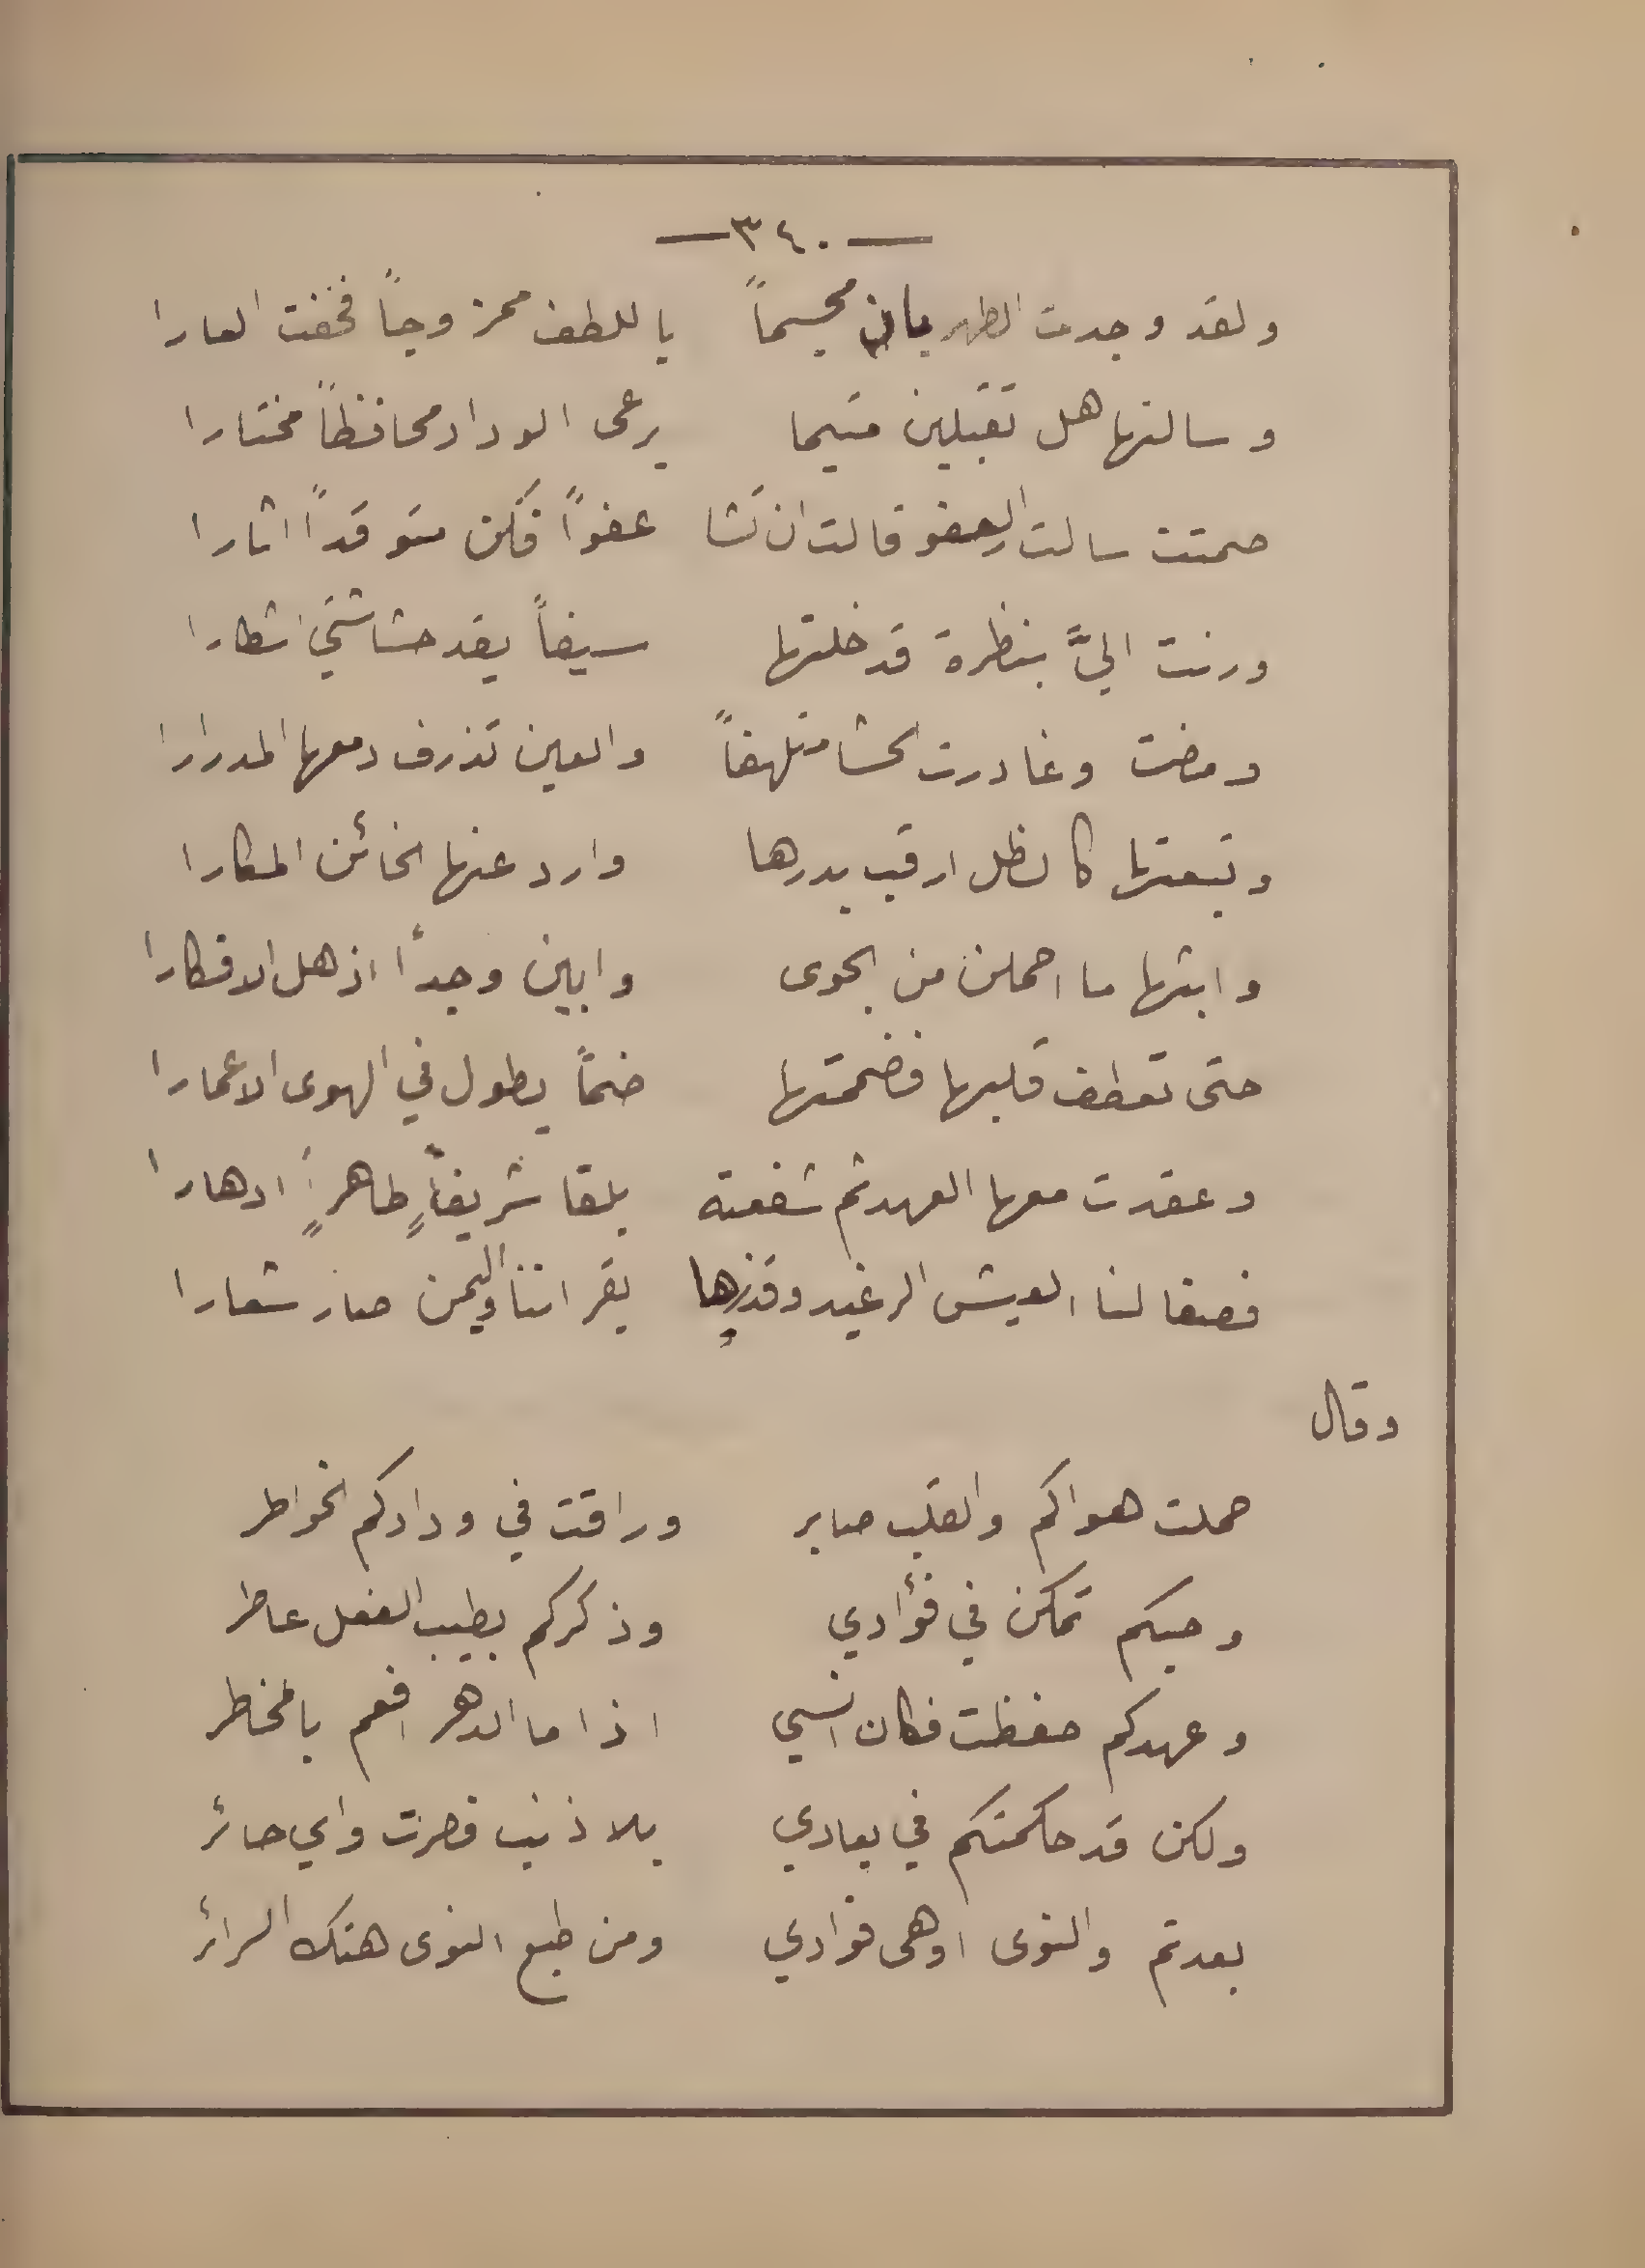 —٣٤٠—
ولقد وجدت الطهر بان مجسماً يا للطف ممزوجاً فخفت العارا
وسالتها هل تقبلين متيما يرعى الوداد محافظاً مختارا
صمتت سالت العفو قالت ان تشا عفواً فكن متوقداً اثارا
ورنت اليَّ بنظرة قد خلتها سيفاً يقد حشاشتي اشطارا
ومضت وغادرت الحشا متلهفاً والعين تذرف دمعها المدرارا
وتبعتها كالظل ارقب بدرها وارد عنها الخائن المكارا
وابثها ما احملن من الجوى وابين وجداً اذهل الافكارا
حتى تعطف قلبها فضممتها ضماً يطول في الهوى الاعمارا
وعقدت معها العهد ثم شفعته بلقا شريفٍ طاهرٍ ادهارا
فصفا لنا العيش الرغيد وقد زها بقراننا واليمن صار شعارا
وقال
حملت هواكم والقلب صابر وراقت في ودادكم الخواطر
وحبكم تمكن في فؤادي وذكركم بطيب الفعل عاطر
وعهدكم حفظت فكان انسي اذا ما الدهر افعم بالمخاطر
ولكن قد حكمتكم في بعادي بلا ذنب فصرت وايي حائر
بعدتم والنوى اوهى فوادي ومن طبع النوى هتك السرائر